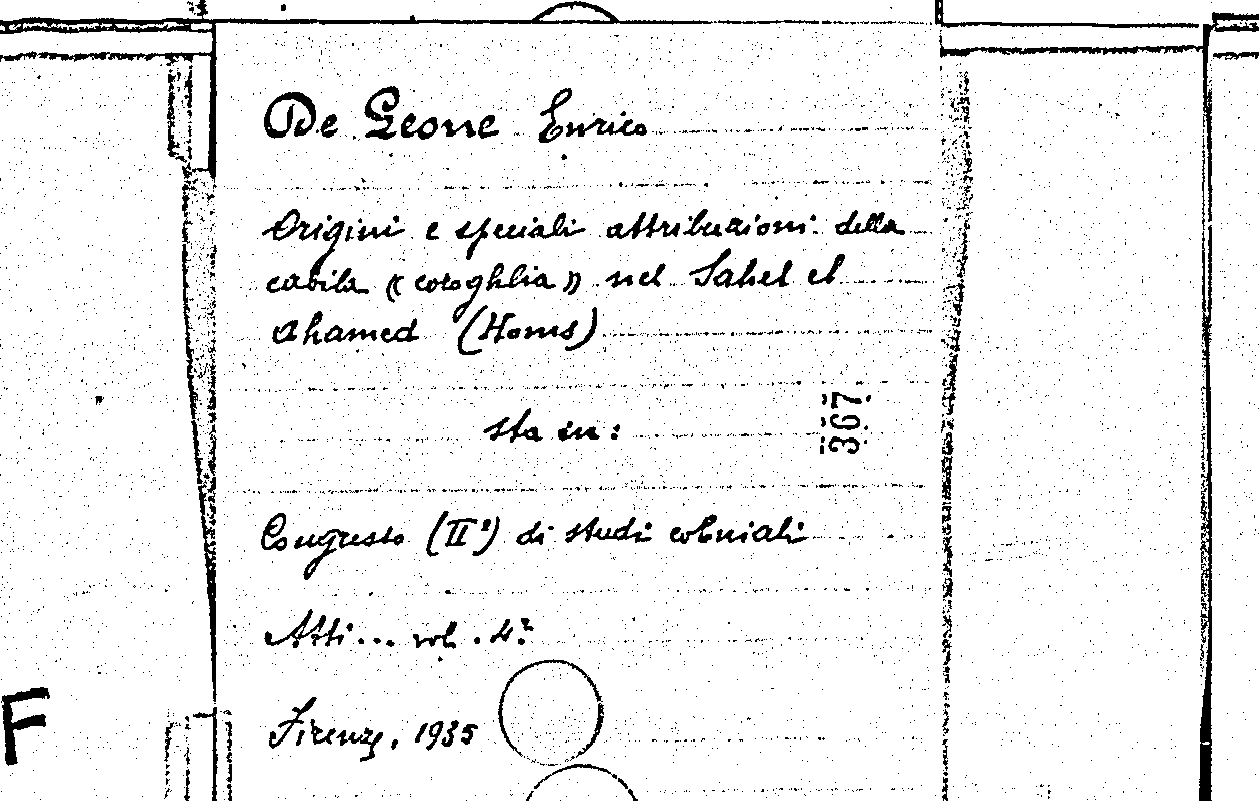 De Leone Enrico
Origini e speciali attribuzioni della
cabila « cologhlia » nel Sahel el
Ahamed (Homs)
367
sta in:
Congresso (II°) di studi coloniali
Atti... vol. 4°
Firenze, 1935
F